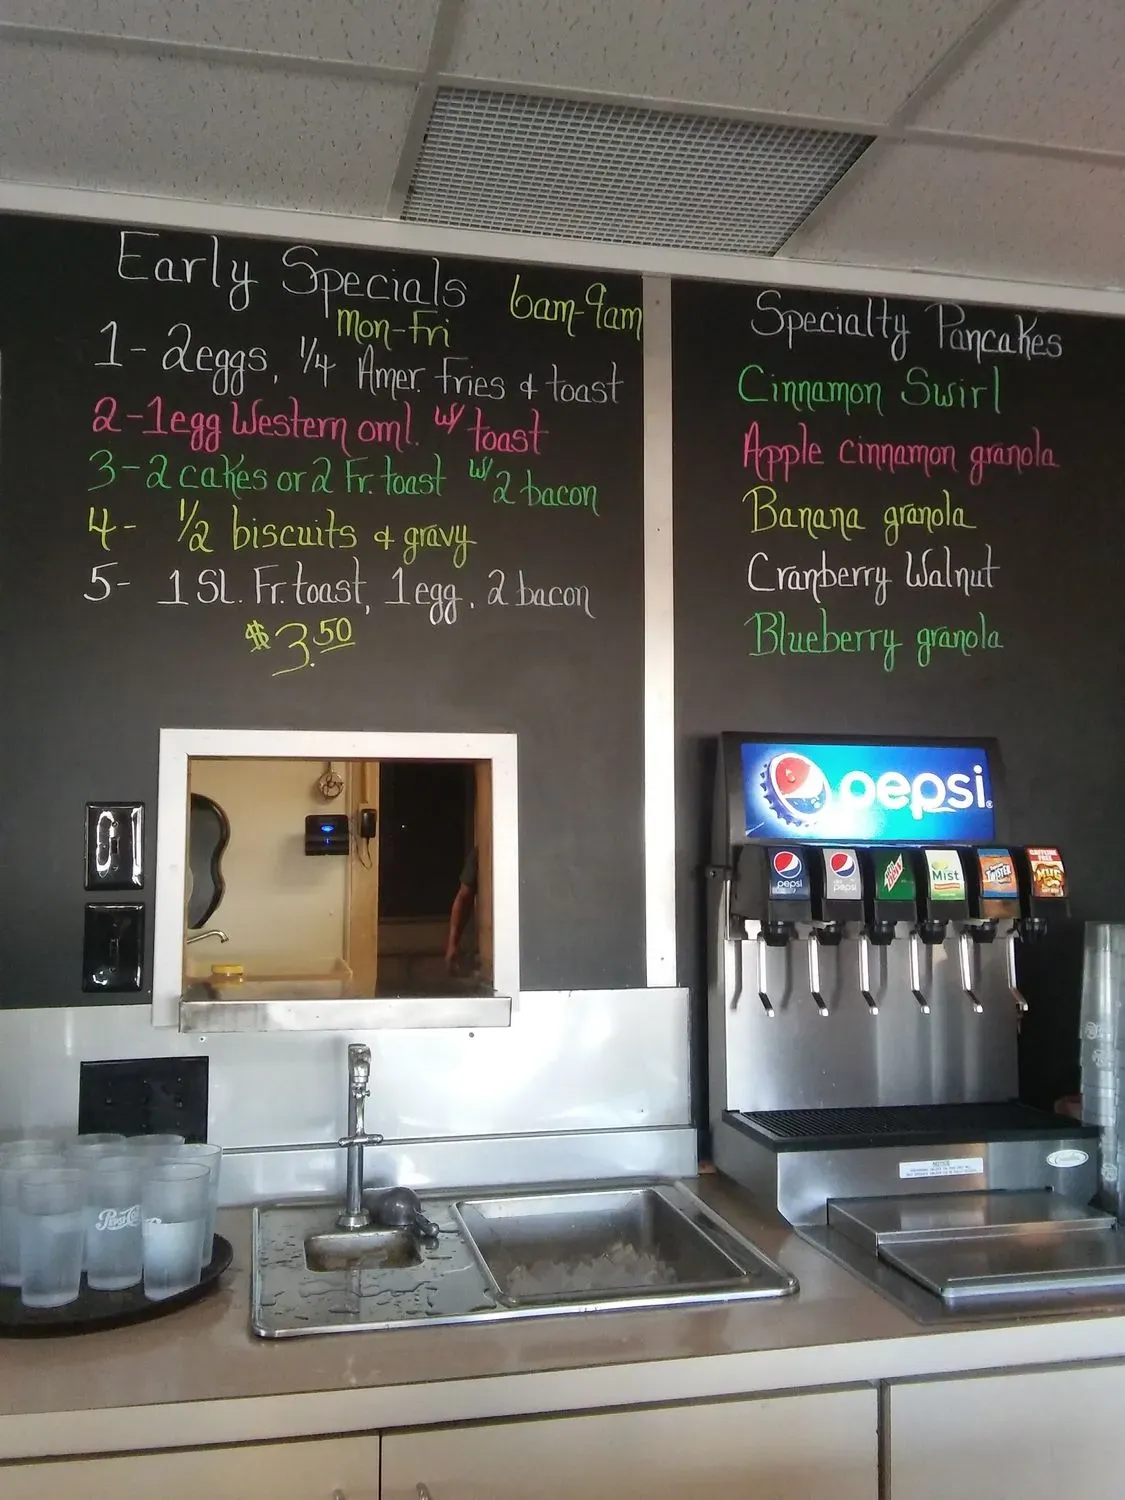 Early Specials 6am-9am
Mon-Fri
1- 2eggs, 1/4 Amer. Fries & toast
2-1egg Western oml. w/ toast
3-2 cakes or 2 Fr. toast w/ 2 bacon
4- 1/2 biscuits & gravy
5- 1 Sl. Fr. toast, 1egg, 2 bacon
$3.50
Specialty Pancakes
Cinnamon Swirl
Apple cinnamon granola
Banana granola
Cranberry Walnut
Blueberry granola
pepsi
pepsi
pepsi
Mist
TWISTER
CAFFEINE FREE
MUG
NOTICE
Pepsi-Cola